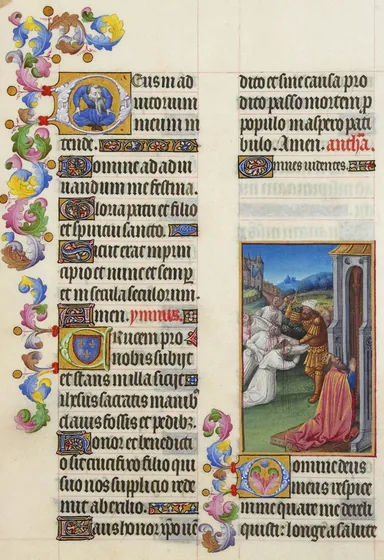 Deus in ad
iutorium
meum in
tende.
Domine ad adiu
uandum me festina.
Gloria patri et filio
et spiritu sancto.
Sicut erat in prin
cipio et nunc et semp
et in secula seculorum.
Amen. ymnus.
Crucem pro
nobis subijt
et stans in illa sitijt
ihesus sacratis manib
clauis fossis et pedibz.
Honor et benedicti
o sit crucifixo filio qui
suo nos supplicio rede
mit ab exilio.
Laus honor xpo uen
dito et sine causa pro
dito passo mortem p
populo in aspero pati
bulo. Amen. antha.
Omnes uidentes.
Domine deus
meus respice
in me quare me dereli
quisti: longe a salute